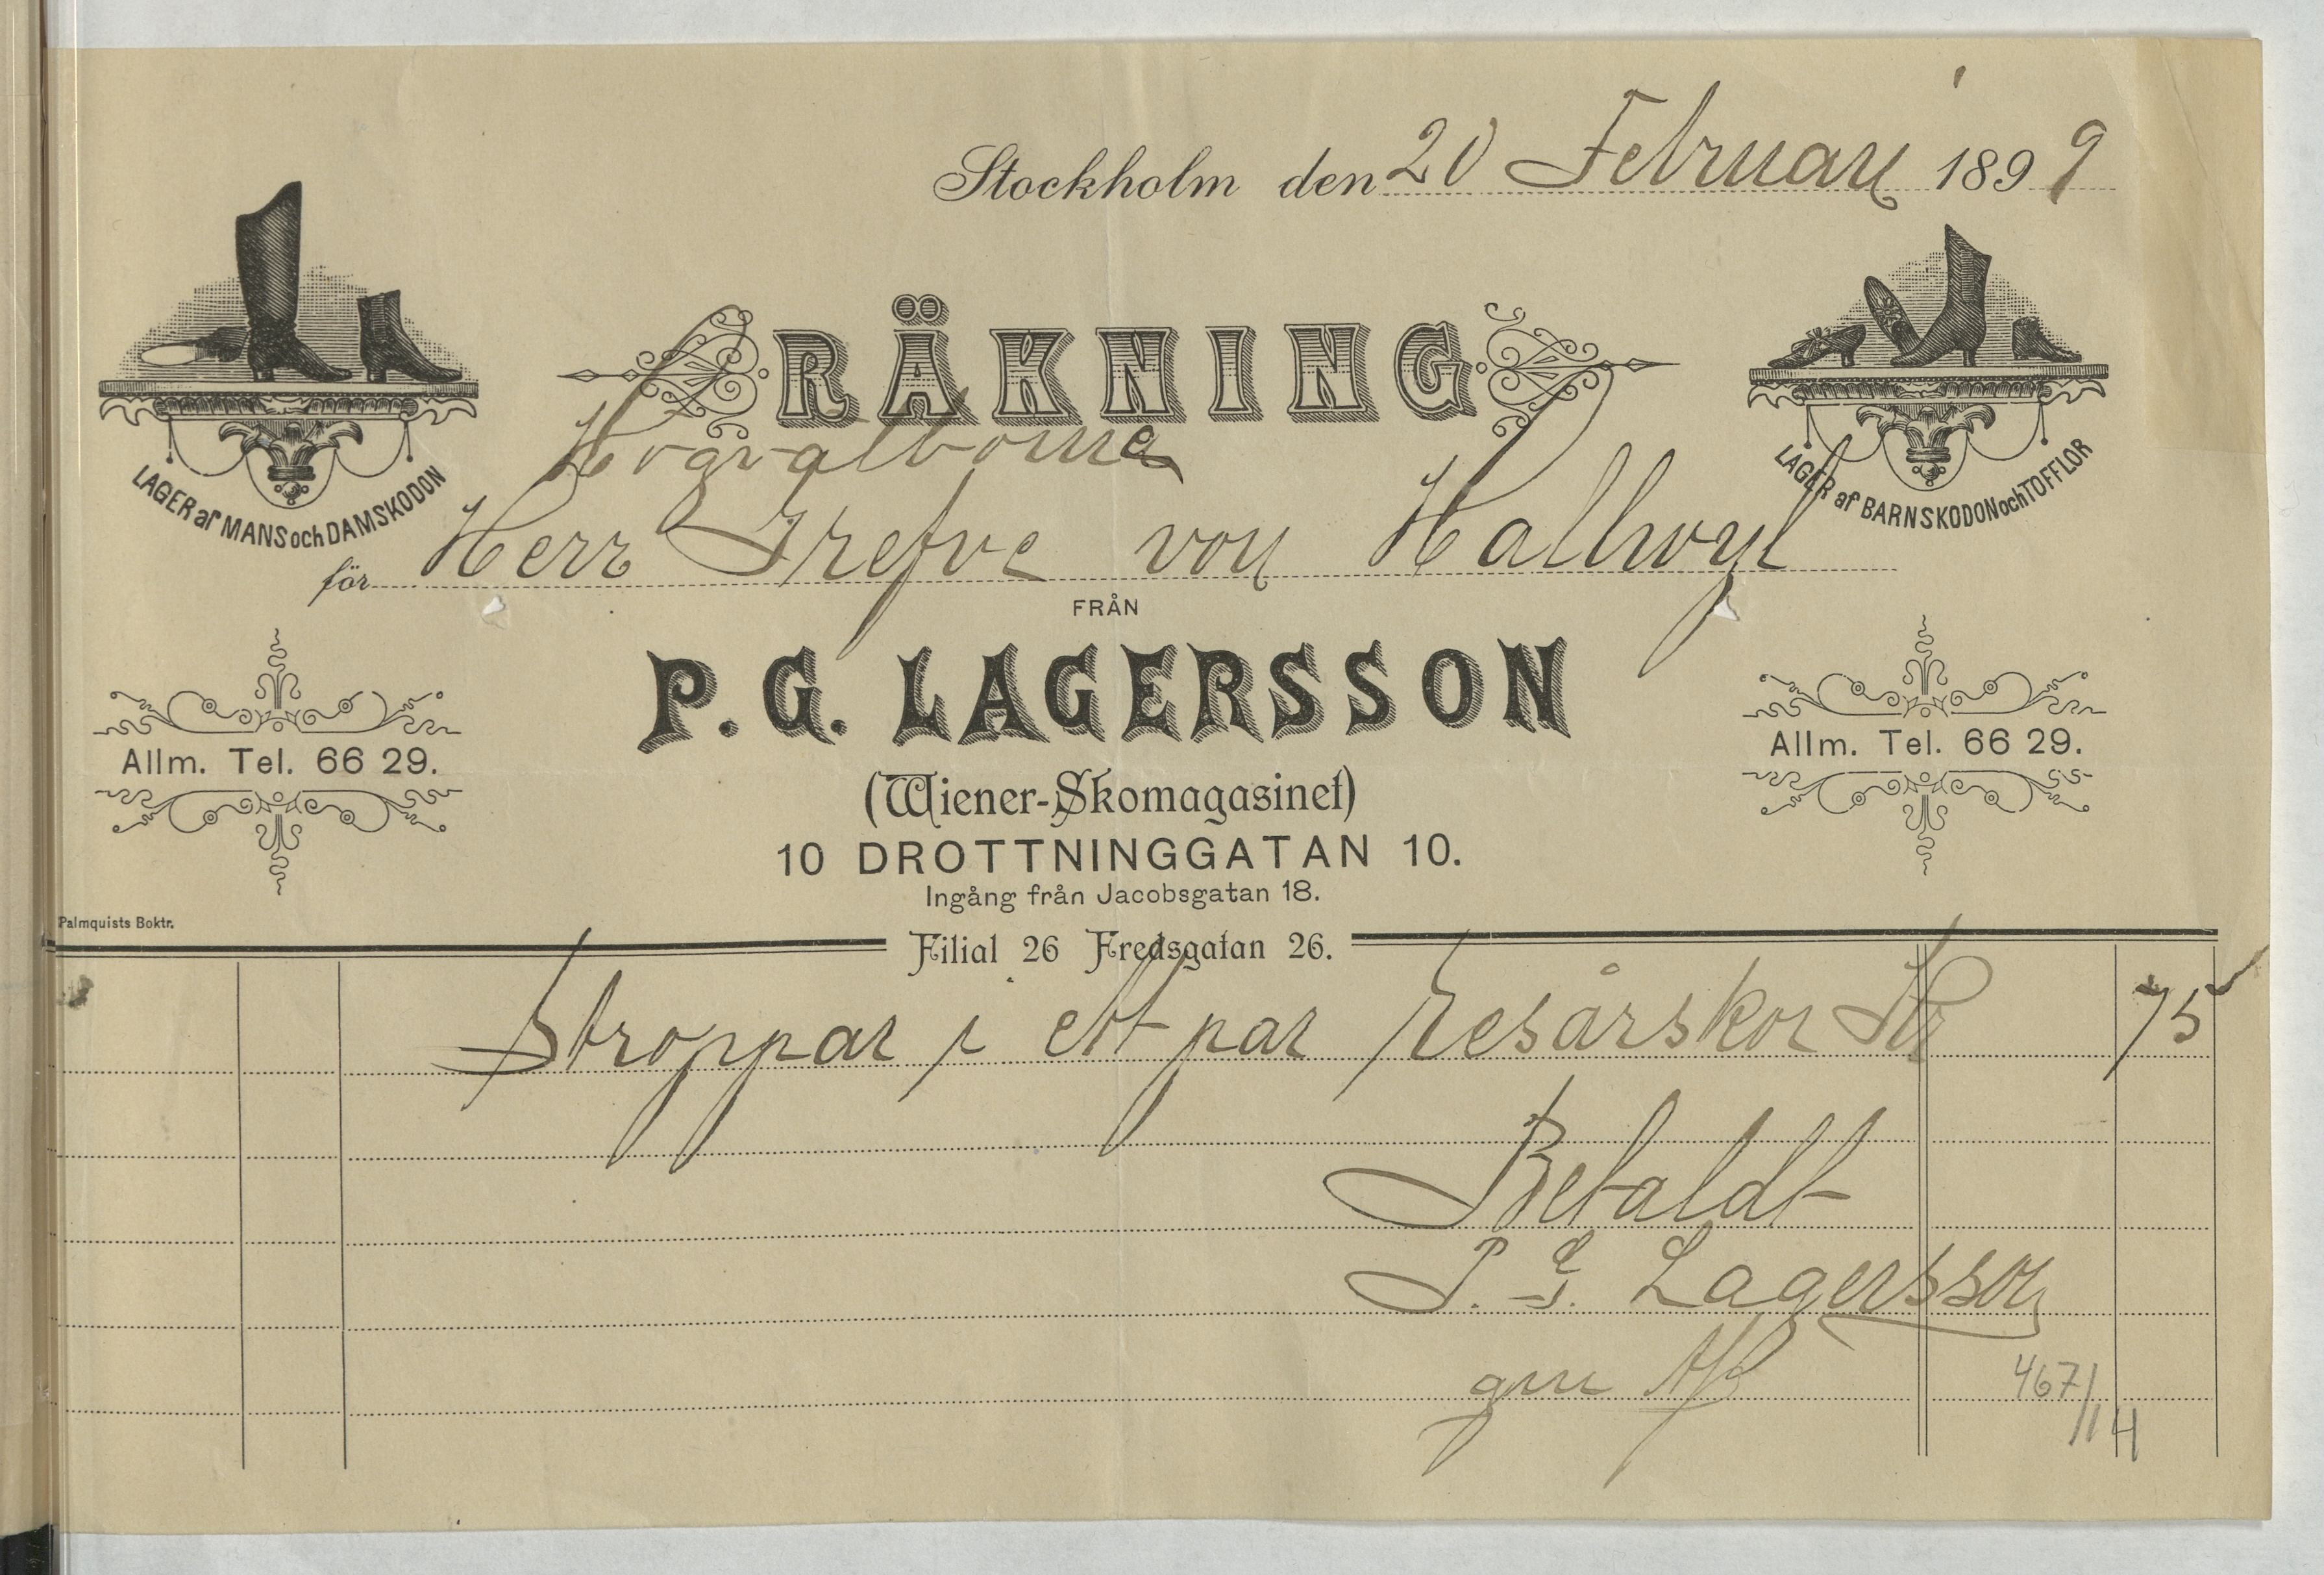 Stockholm den 20 Februari 1899
RÄKNING
LAGER af MANS och DAMSKODON
LAGER af BARNSKODON och TOFFLOR
Högvälborne
för Herr Grefve von Hallwyl
FRÅN
P. G. LAGERSSON
Allm. Tel. 66 29.
Allm. Tel. 66 29.
(Wiener-Skomagasinet)
10 DROTTNINGGATAN 10.
Ingång från Jacobsgatan 18.
Palmquists Boktr.
Filial 26 Fredsgatan 26.
Stroppar i ett par Resårskor Kr 75
Betaldt
P. G. Lagersson
gm
467/14